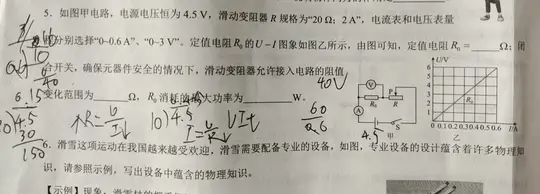 5. 如图甲电路,电源电压恒为 4.5 V,滑动变阻器 R 规格为“20 Ω;2 A”,电流表和电压表量
程分别选择“0~0.6A”、“0~3 V”。定值电阻 R₀ 的 U-I 图象如图乙所示,由图可知,定值电阻 R₀ = ____ Ω;闭
合开关,确保元器件安全的情况下,滑动变阻器允许接入电路的阻值
变化范围为____Ω,R₀ 消耗的最大功率为____W。
40V
10
40
6.15
4.5
30
150
R=U/I
10)4.5
I=U/R
UIt
60
0.6
V
R₀
P
R
A
S
4.5
甲
U/V
6
5
4
3
2
1
0 0.1 0.2 0.3 0.4 0.5 0.6 I/A
乙
6. 滑雪这项运动在我国越来越受欢迎,滑雪需要配备专业的设备,如图,专业设备的设计蕴含着许多物理知
识,请参照示例,写出设备中蕴含的物理知识。
【示例】现象:滑雪